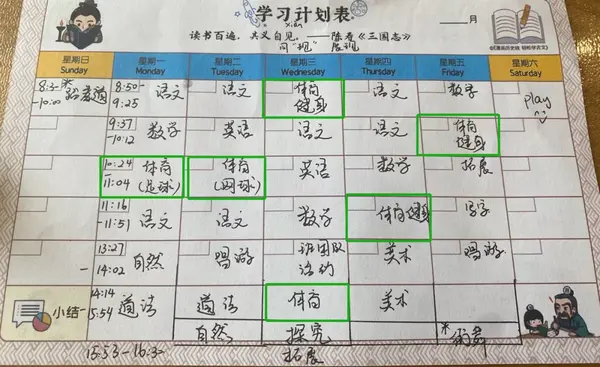 学习计划表
___月
xiàn
读书百遍,其义自见。——陈寿《三国志》
同"现" 展现
星期日 星期一 星期二 星期三 星期四 星期五 星期六
Sunday Monday Tuesday Wednesday Thursday Friday Saturday
8:50- 9:25 语文 语文 体育健身 语文 数学 play
9:57 -10:12 数学 英语 语文 语文 体育健身
10:24 -11:04 体育(足球) 体育(网球) 英语 数学 拓展
11:16 -11:51 语文 语文 数学 体育健身 写字
13:27 -14:02 自然 唱游 美术 唱游
小结 14:14 道法 道法 体育 美术
自然 探究
拓展